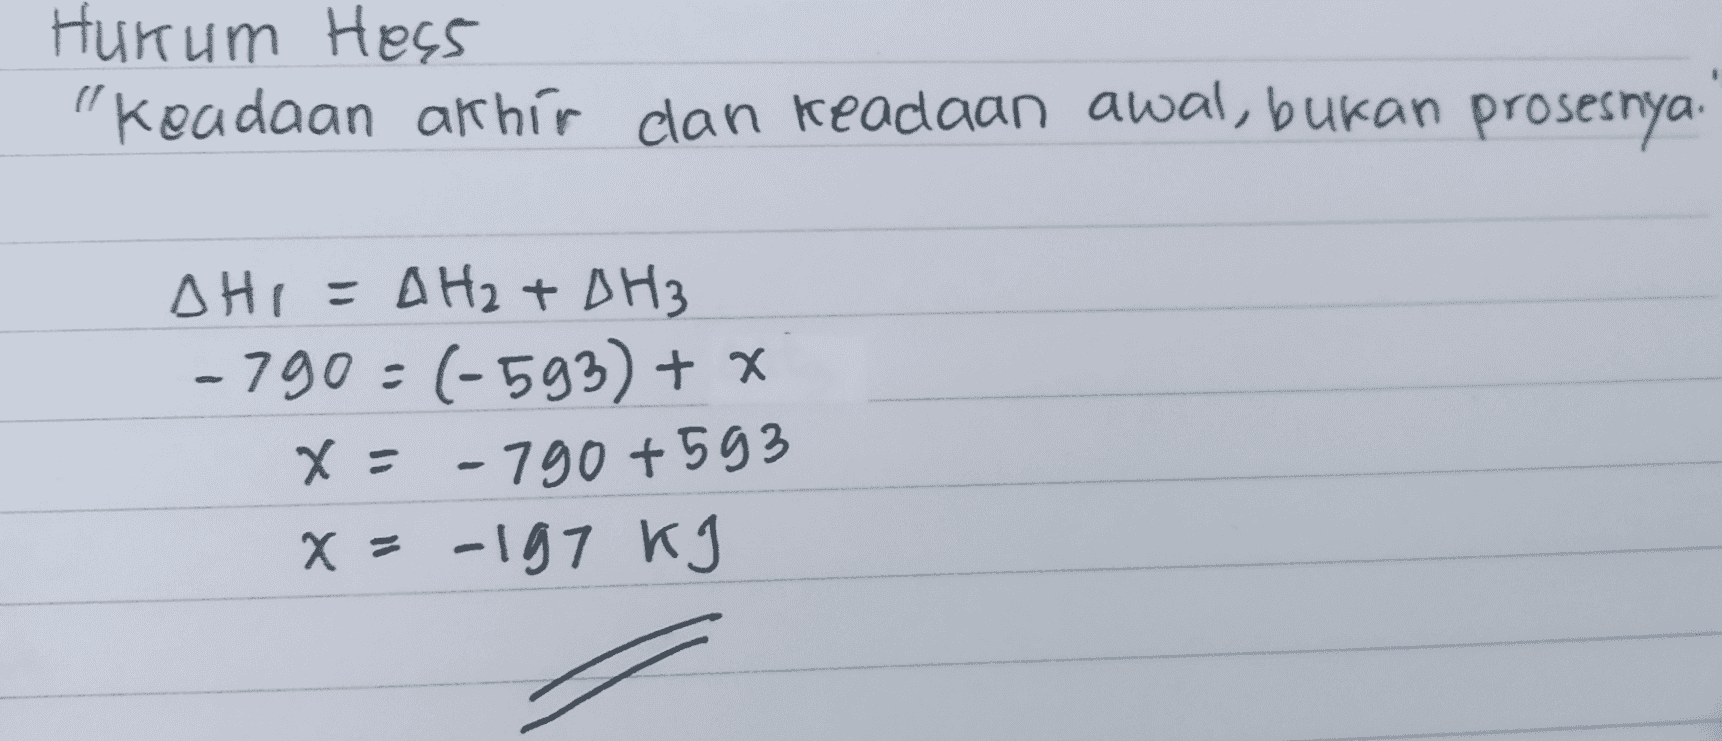 Hukum Hess
"Keadaan akhir dan keadaan awal, bukan prosesnya."
ΔH1 = ΔH2 + ΔH3
-790 = (-593) + x
x = -790 + 593
x = -197 KJ